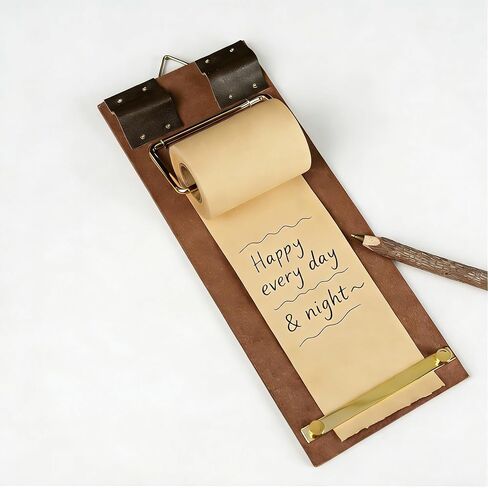 Happy
every day
& night~